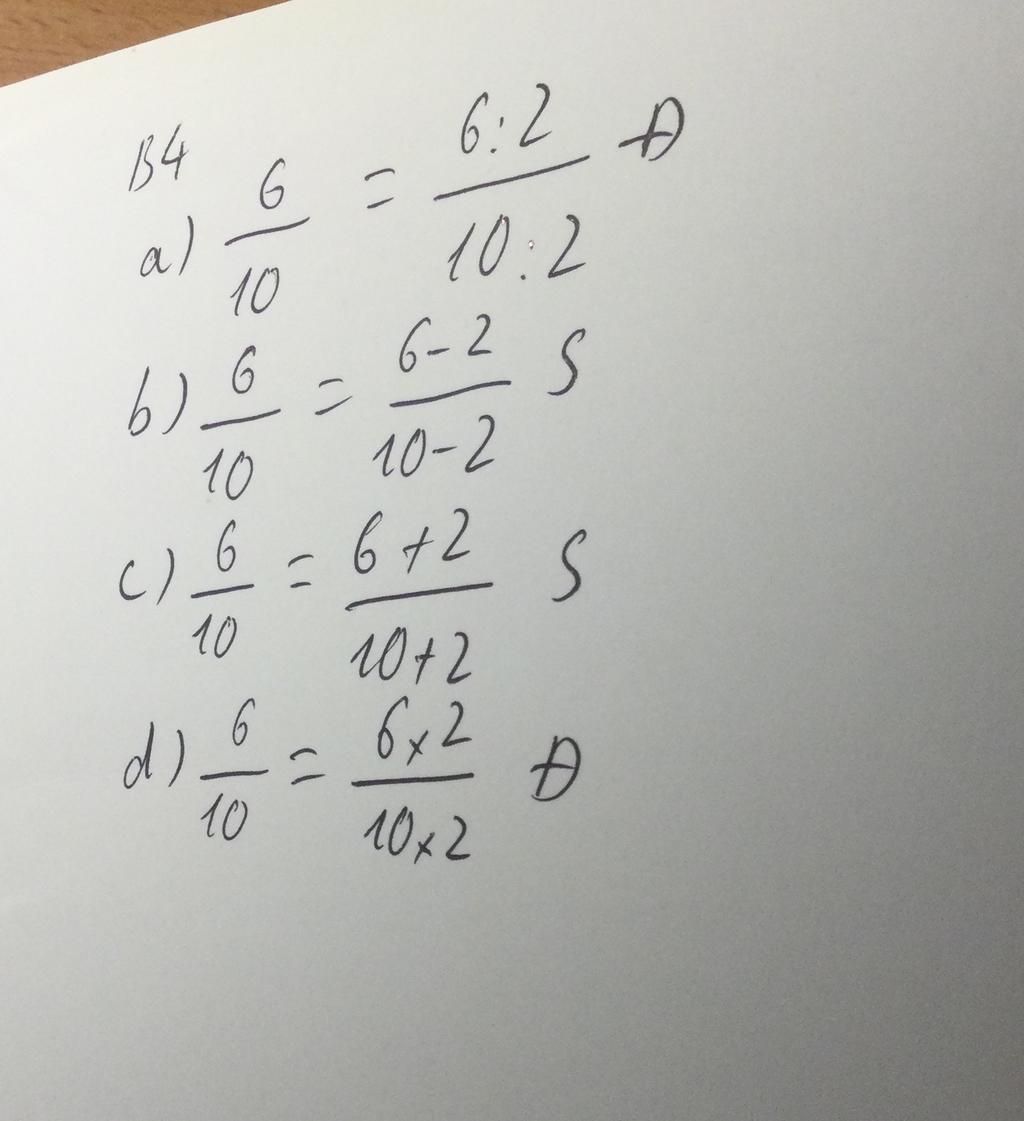 B4
a) 6/10 = 6:2/10:2 Đ
b) 6/10 = 6-2/10-2 S
c) 6/10 = 6+2/10+2 S
d) 6/10 = 6x2/10x2 Đ